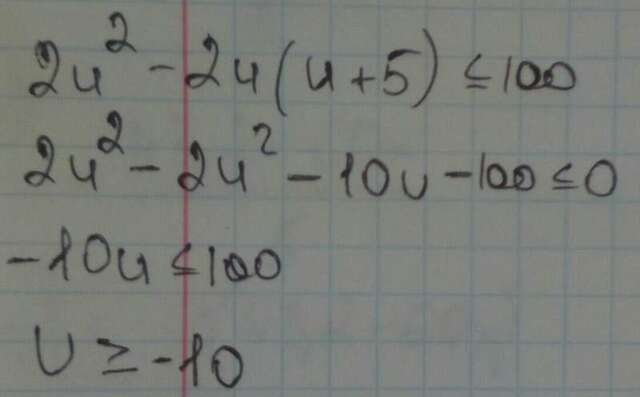 2u² - 2u(u+5) ≤ 100
2u² - 2u² - 10u - 100 ≤ 0
-10u ≤ 100
u ≥ -10